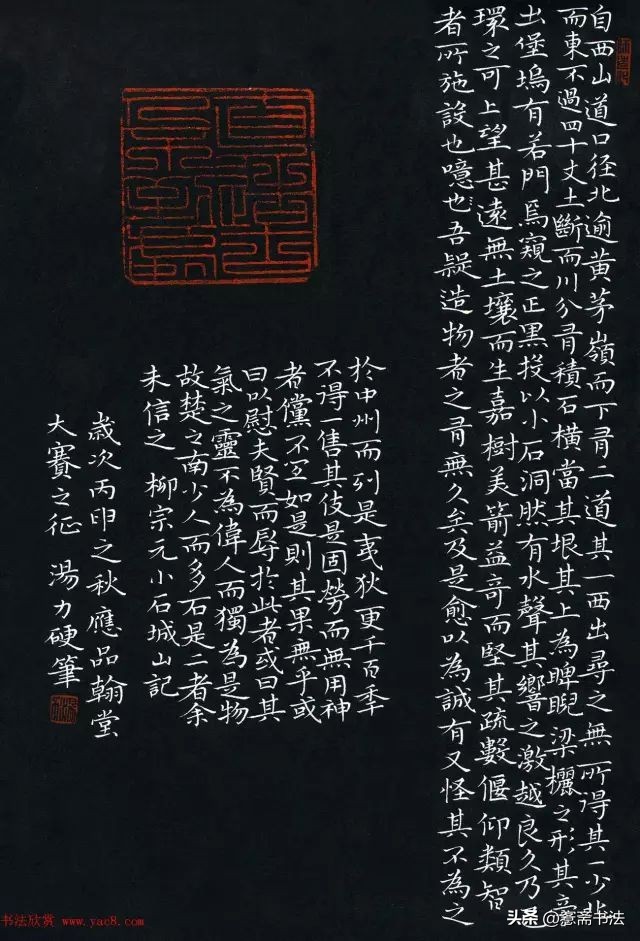 自西山道口径北逾黄茅嶺而下有二道其一西出尋之無所得其一少北
而東不過四十丈土斷而川分有積石橫當其垠其上為睥睨梁欐之形其旁
出堡塢有若門焉窺之正黑投以小石洞然有水聲其響之激越良久乃已
環之可上望甚遠無土壤而生嘉樹美箭益奇而堅其疏數偃仰類智
者所施設也噫也吾疑造物者之有無久矣及是愈以為誠有又怪其不為之
於中州而列是夷狄更千百年
不得一售其伎是固勞而無用神
者儻不宜如是則其果無乎或
曰以慰夫賢而辱於此者或曰其
氣之靈不為偉人而獨為是物
故楚之南少人而多石是二者余
未信之 柳宗元小石城山記
歲次丙申之秋應品翰堂
大賽之征 湯力硬筆
书法欣赏 www.yac8.com
头条 @薏斋书法